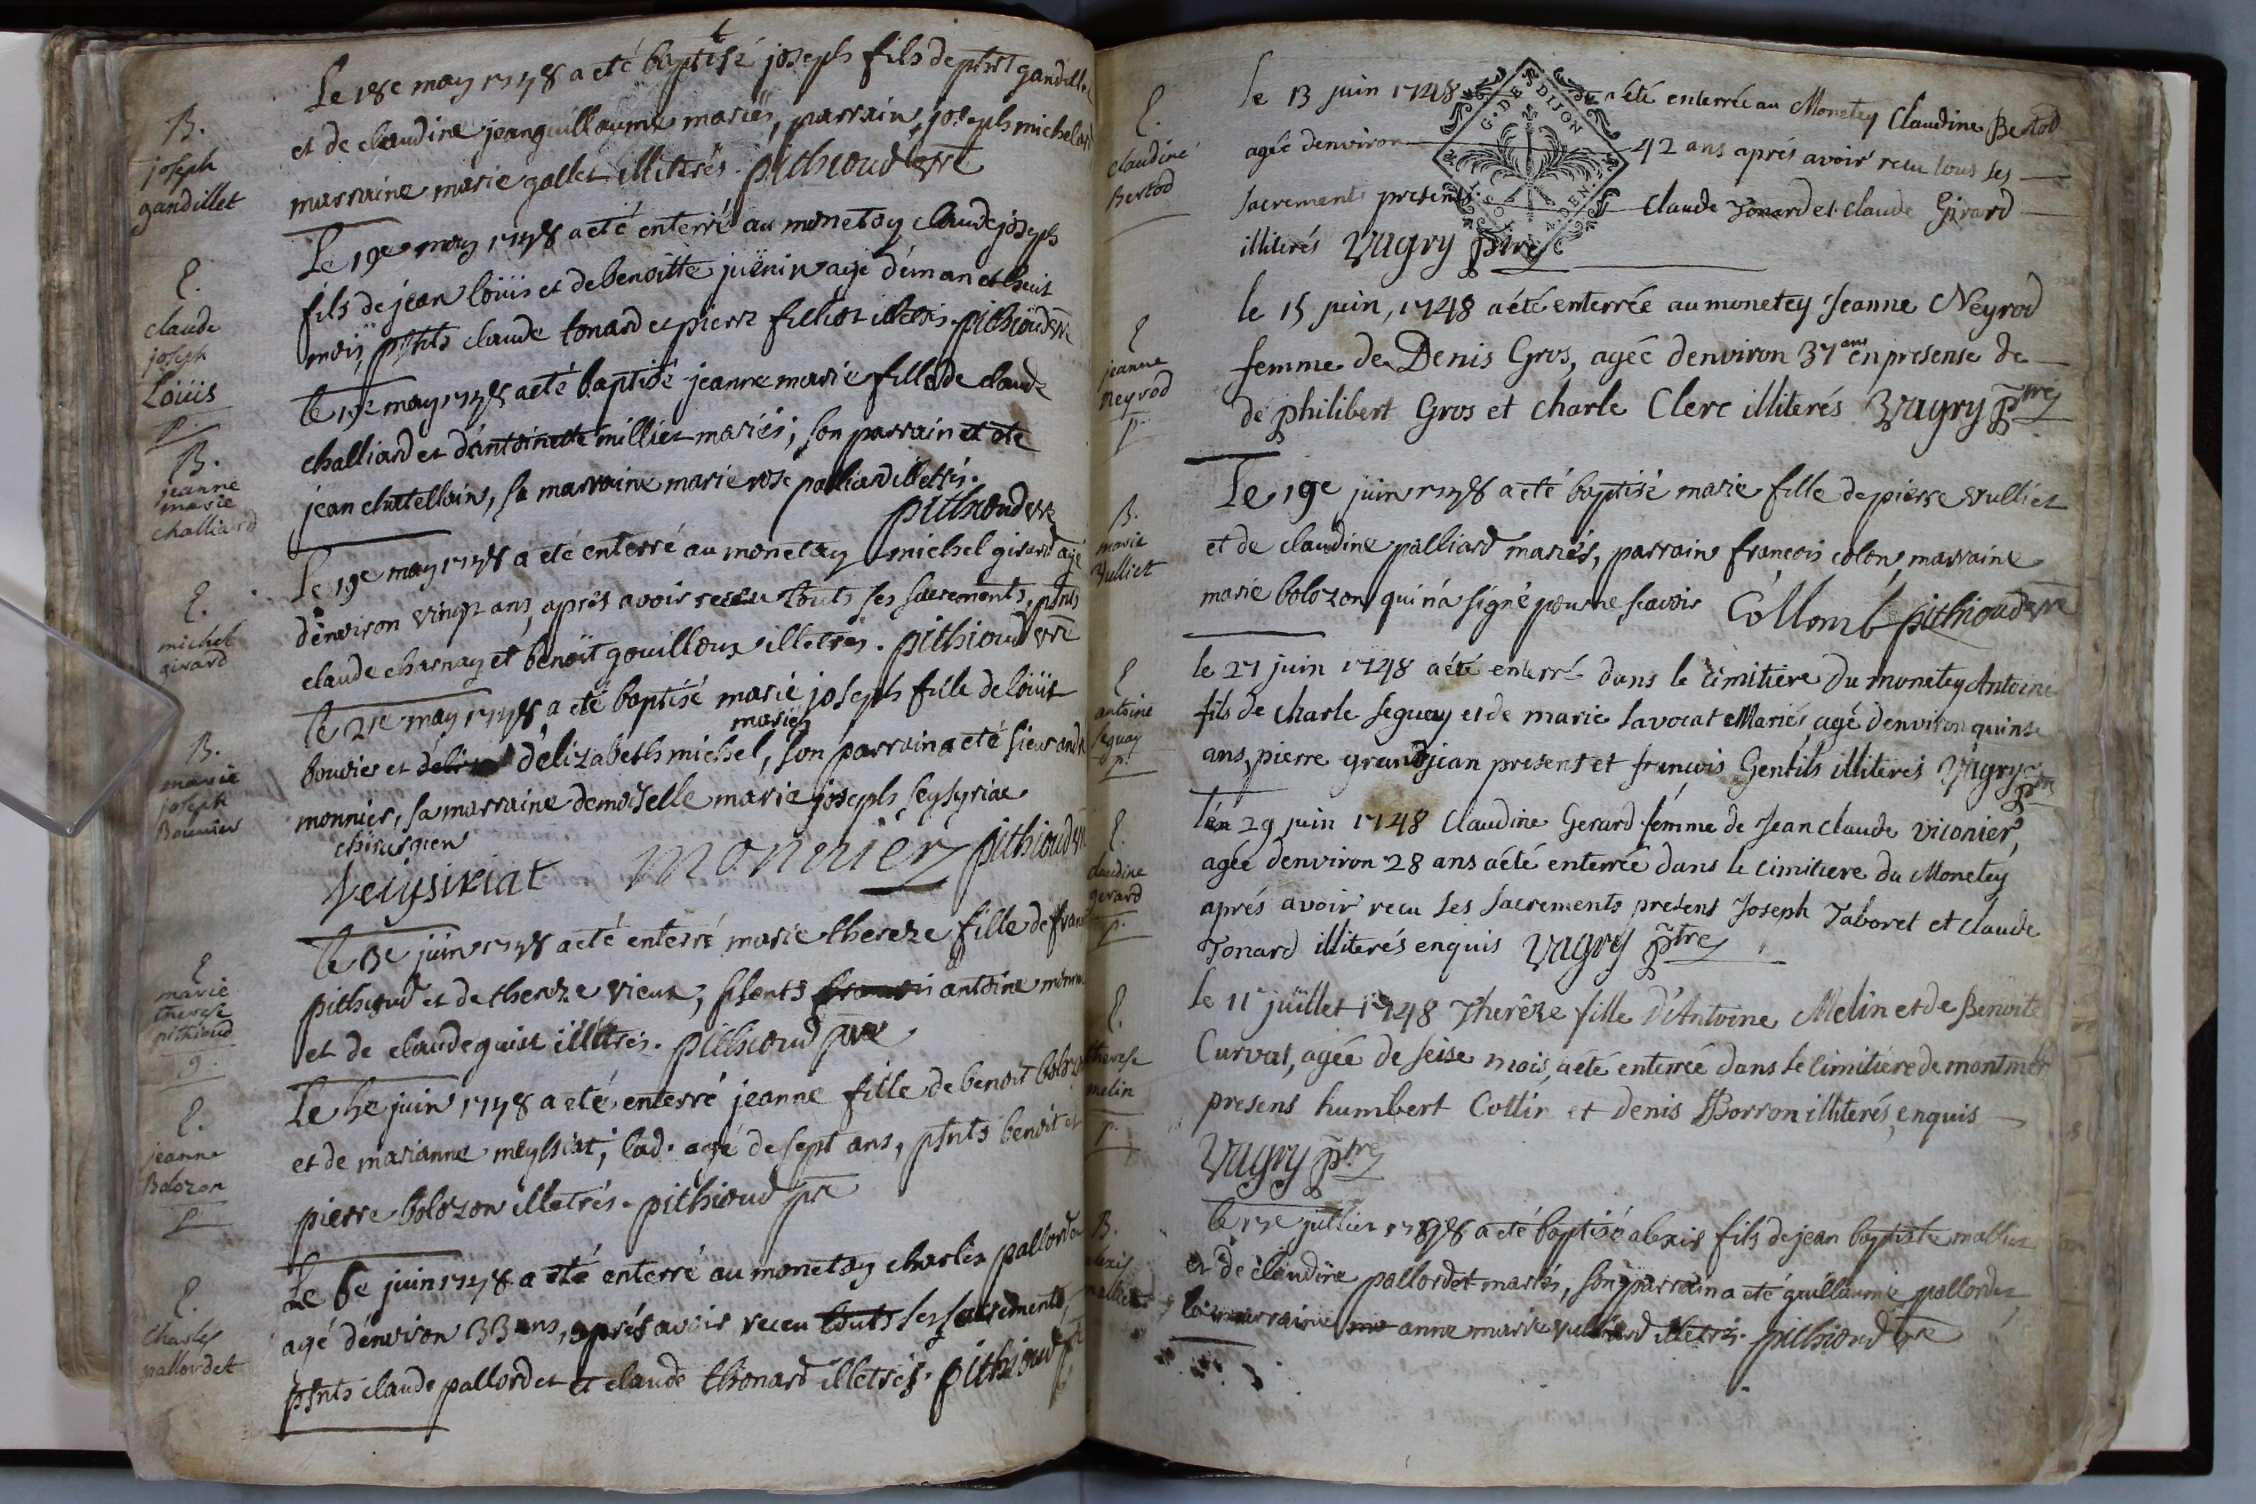 Le 18e may 1748 a eté baptisé joseph fils de ptsit gandillet
et de claudine jeanguillaume mariés, parrain, joseph michelard
marraine marie gallet illiterés. pithioud vre
B.
joseph
gandillet
Le 19e may 1748 a eté enterré au monetay claude joseph
fils de jean loüis et de benoitte juënin agé d'un an et huit
mois, psnts claude tonard et pierre filliot illetrés. pithioud vre
E.
claude
joseph
Loüis
p.
le 19e may 1748 a eté baptisé jeanne marie fille de claude
challiard et d'antoinette milliet mariés; son parrain et ete
jean chatellain, sa marraine marie rose palliard illetrés.
pithioud vre
B.
jeanne
marie
challiard
Le 19e may 1748 a eté enterré au monetay michel girard agé
d'environ vingt ans, aprés avoir receu touts ses sacrements, psnts
claude charnay et benoit gouilloux illetrés. pithioud vre
E.
michel
girard
le 21e may 1748 a eté baptisé marie joseph fille de loüis
mariés
bouvier et d'elizabeth michel, son parrain a eté sieur andré
monnier, sa marraine demoiselle marie joseph seysyriat
chirurgien
Seiysiriat monnier pithioud vre
B.
marie
joseph
Bouvier
le 3e juin 1748 a eté enterré marie thereze fille de franc
pithioud et de thereze vieux, psents antoine
et de claude guist illetrés. pithioud pre
E
marie
therese
pithioud
g.
Le 4e juin 1748 a eté enterré jeanne fille de benoit bolozon
et de marianne meyssiat; lad. agé de sept ans, psnts benoit et
pierre bolozon illetrés. pithioud pre
E.
jeanne
Bolozon
p
Le 6e juin 1748 a eté enterré au monetay charles pallordet
agé d'environ 33 ans, aprés avoir receu touts ses sacrements,
psnts claude pallordet et claude thonard illetrés. pithioud pre
E.
Charles
pallordet
le 13 juin 1748 a été enterrée au Monetey Claudine Bertod
agée denviron 42 ans aprés avoir recu tous ses
sacrements presents Claude Tonard et claude Girard
illiterés Vugry ptre
G. DE DIJON
E.
claudine
Bertod
le 15 juin, 1748 a été enterrée au monetey Jeanne Neyrod
femme de Denis Gros, agée denviron 37 ans en presense de
de philibert Gros et charle Clerc illiterés Vugry ptre
E
jeanne
neyrod
p.
Le 19e juin 1748 a eté baptisé marie fille de pierre vulliet
et de claudine palliard mariés, parrain francois colon, marraine
marie bolozon qui n'a signé pour ne scavoir Collomb pithioud vre
B.
marie
Vulliet
le 27 juin 1748 a été enterré dans le cimitiere du monetey Antoine
fils de charle seguay et de marie lavocat Mariés, agé denviron quinse
ans, pierre grandjean present et françois Gentils illiterés Vugry ptre
E
antoine
seguay
p.
len 29 juin 1748 Claudine Gerard femme de Jean claude vionier,
agée denviron 28 ans a été enterrée dans le cimitiere du Monetey
aprés avoir recu ses sacrements present Joseph Taboret et claude
Tonard illiterés enquis Vugry ptre
E.
claudine
gerard
p.
le 11 juillet 1748 Therêze fille d'Antoine Melin et de Benoite
Curvat, agée de seise mois, a été enterrée dans le cimitiere de montmer
presens humbert Collin et Denis Borron illiterés, enquis
Vugry ptre
E.
therese
melin
p.
le 17e juillet 1748 a eté baptisé alexis fils de jean baptiste malliet
et de claudine pallordet mariés, son parrain a eté guillaume pallordet
la marraine anne marie vulliard illetrés. pithioud vre
B.
alexis
malliet